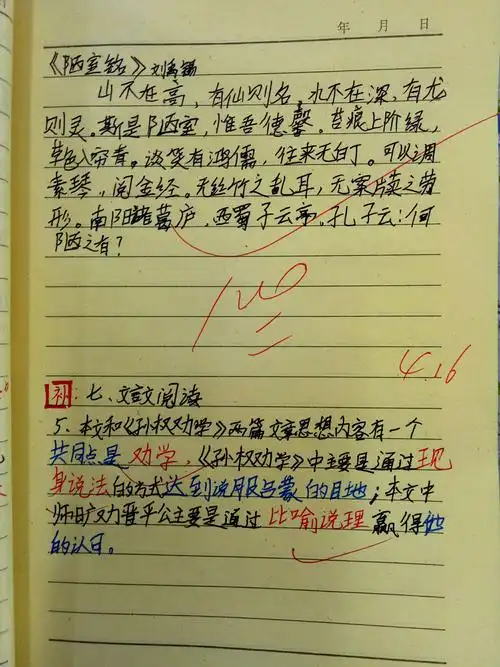 年 月 日
《陋室铭》刘禹锡
山不在高，有仙则名。水不在深，有龙
则灵。斯是陋室，惟吾德馨。苔痕上阶绿，
草色入帘青。谈笑有鸿儒，往来无白丁。可以调
素琴，阅金经。无丝竹之乱耳，无案牍之劳
形。南阳诸葛庐，西蜀子云亭。孔子云：何
陋之有？
100
4.16
补：七、文言文阅读
5. 本文和《孙权劝学》两篇文章思想内容有一个
共同点是 劝学，《孙权劝学》中主要是通过现
身说法的方式达到说服吕蒙的目地；本文中
师旷劝晋平公主要是通过 比喻说理 赢得他
的认同。